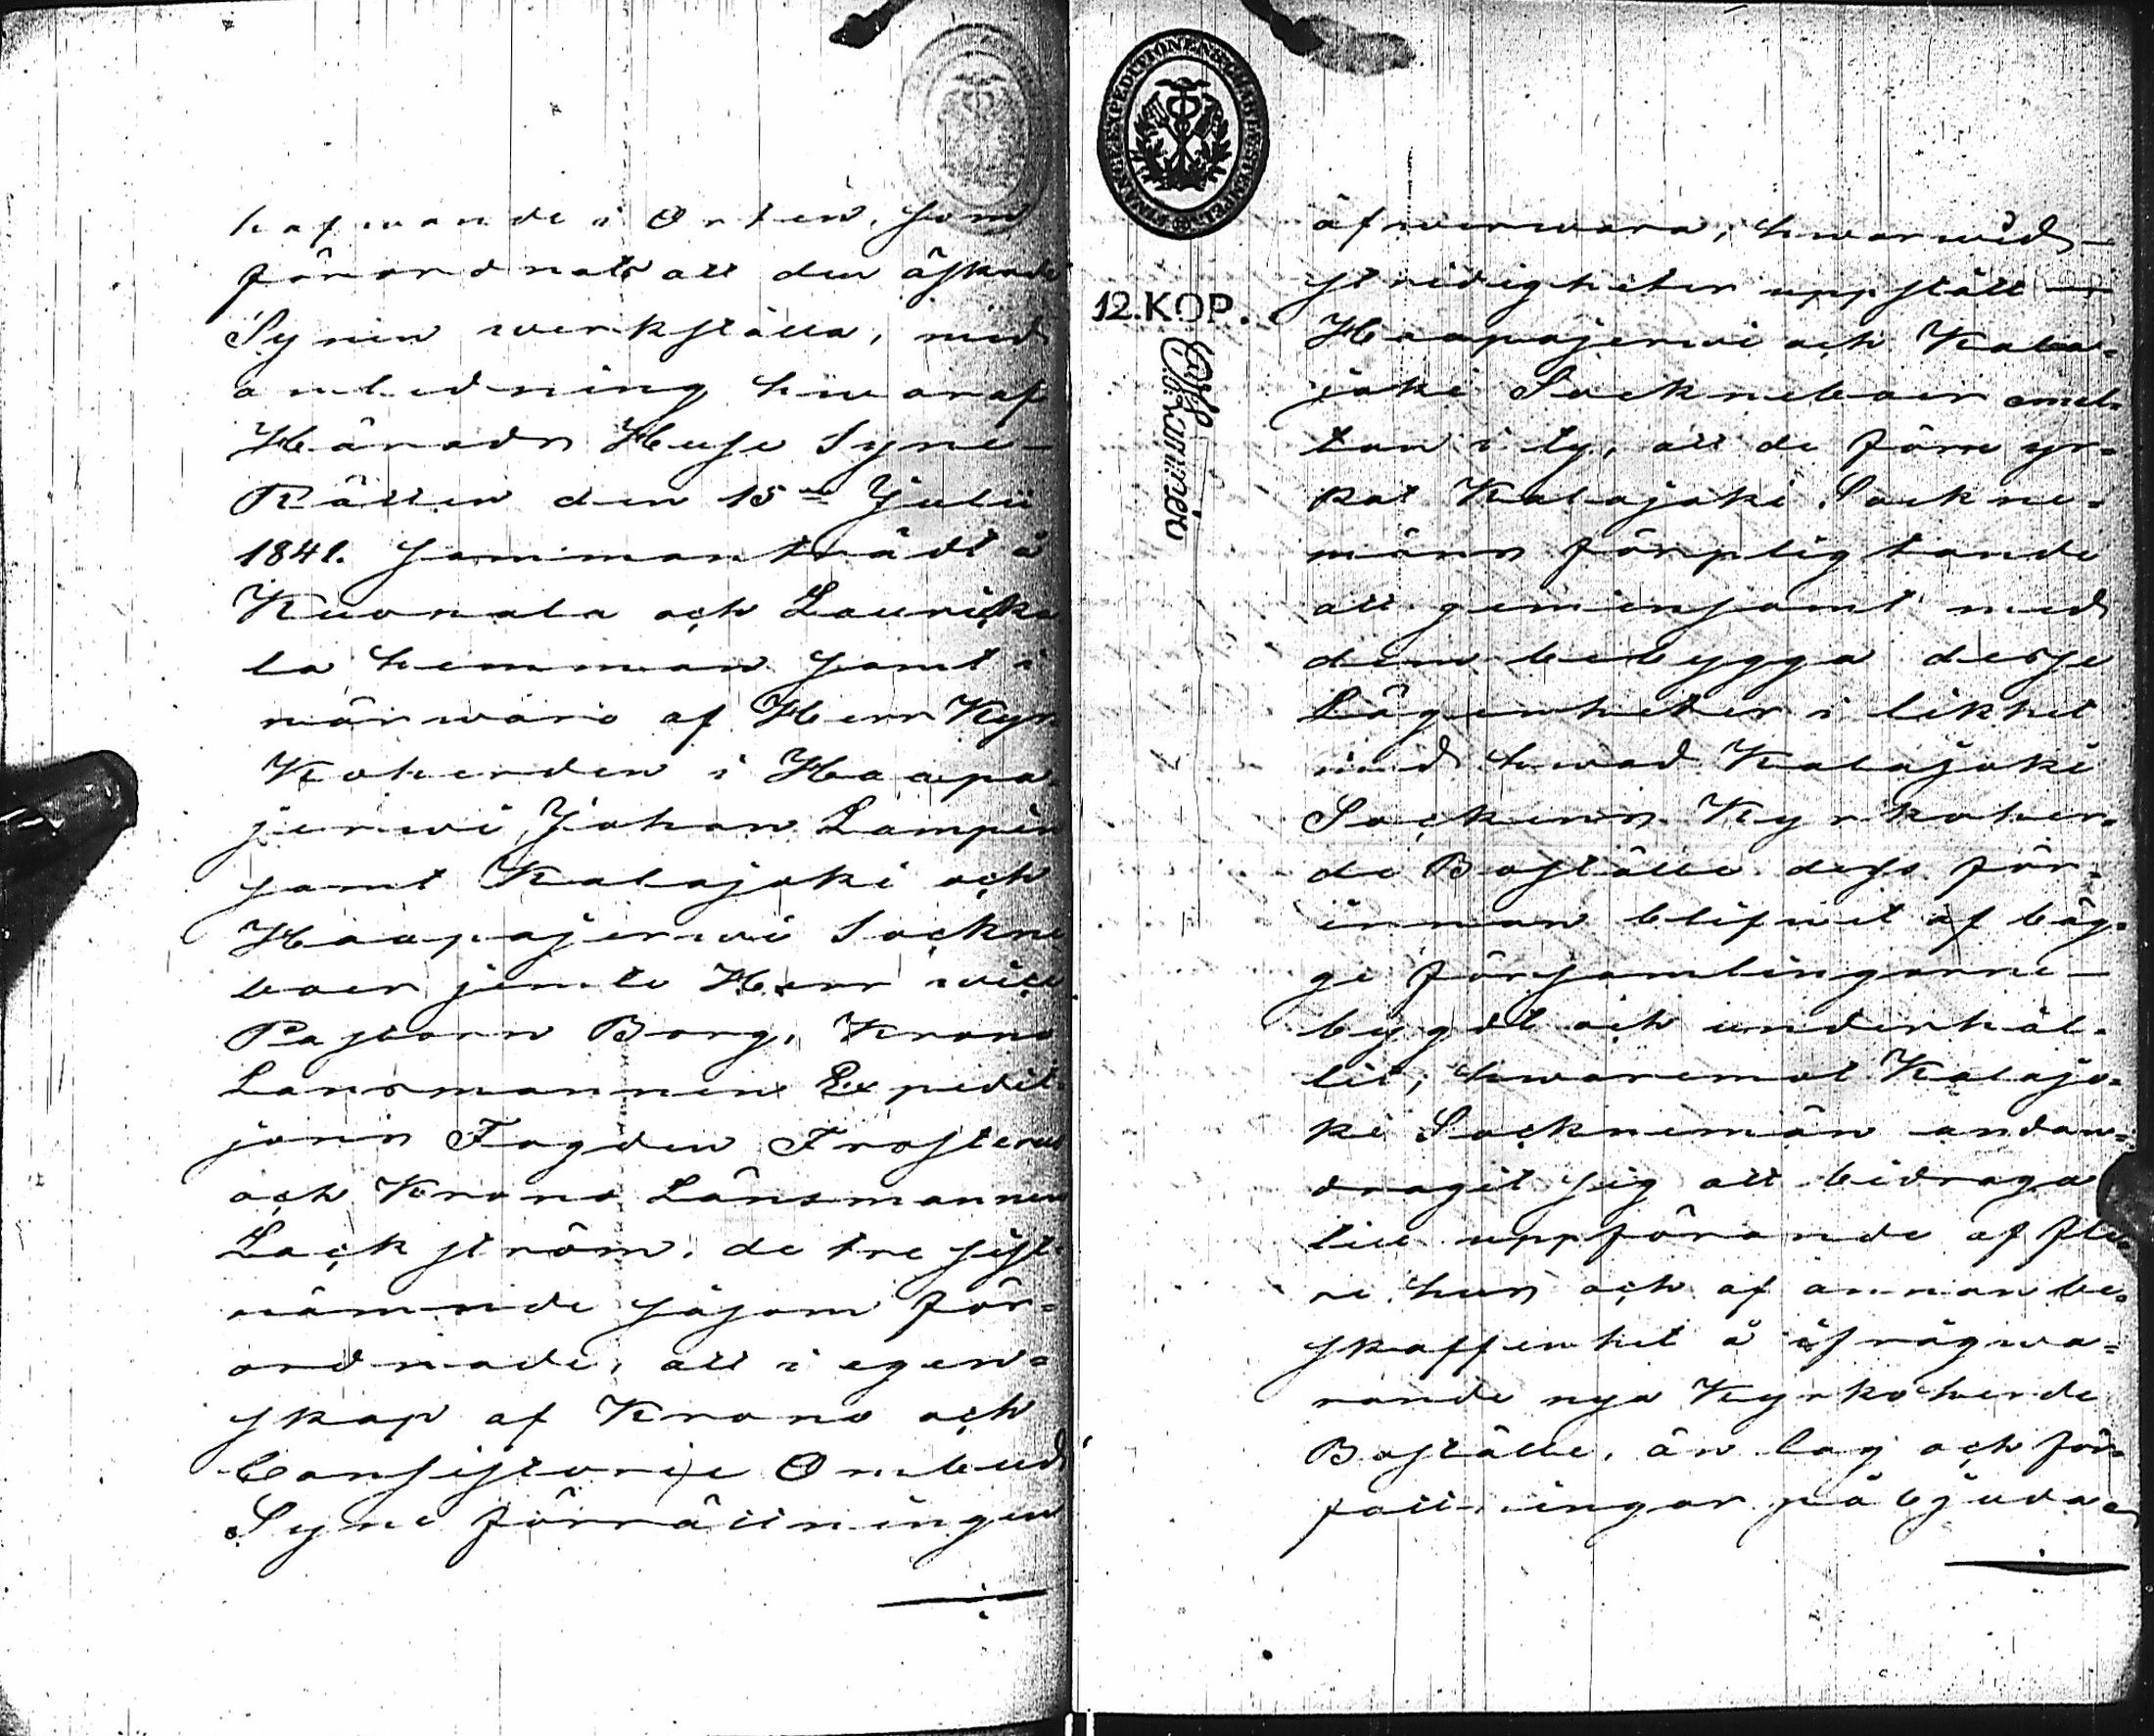 hafwande i Orten, som
förordnats att den äskade
Synen werkställa, med
anledning hwaraf
Härads Husesyns-
Rätten den 15de Julii
1841. sammanträdt å
Kuonala och Laurika
la hemman samt i
närwaro af Herr Kyr
Koherden i Haapa-
jerwi Johan Lampén
samt Kalajoki och
Haapajerwi Sockne
boer jemte Herr wice
Pastorn Borg, Krono
Länsmannen Expedit-
jons Fogden Frosterus
och Krono Länsmannen
Lackström, de tre sist-
nämnde såsom för-
ordnade, att i egen-
skap af Krono och
Consistorie Ombud
Syne förrättningen
öfwerwara, hwarwid-
stridigheter uppstått
Haapajerwi och Kala-
joki Sockneboer emel-
lan i ty, att de förre yr-
kat Kalajoki Sockne-
mäns förpligtande
att gemensamt med
dem bebygga desse
Lägenheter i likhet
med hwad Kalajoki
Sockens Kyrkoher-
de Boställe dess för-
innan blifwit af båg-
ge församlingarne-
bygdt och underhål-
lit; hwaremot Kalajo-
ki Socknemän undan-
dragit sig att bidraga
till uppförande af fle
re hus och af annan be-
skaffenhet å ifrågwa-
rande nya Kyrkoherde
Boställe, än lag och för-
fattningar påbjuda
12.KOP.